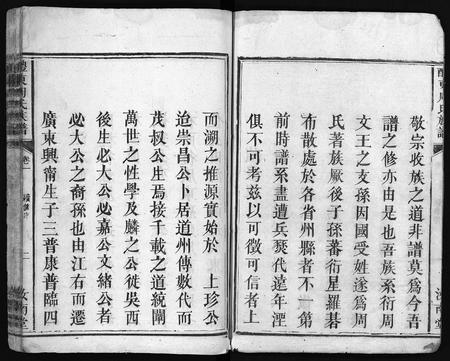 醴東周氏族譜
敬宗收族之道非譜莫爲今吾
譜之修亦由是也吾族系衍周
文王之支孫因國受姓遂爲周
氏著族厥後子孫蕃衍星羅碁
布散處於各省州縣者不一第
前時譜系盡遭兵燹代遠年湮
俱不可考兹以可徵可信者上
而溯之推源實始於 上珍公
迨崇昌公卜居道州傳數代而
茂叔公生焉接千載之道統闡
萬世之性學及麟之公徙吳西
後生必大公必嘉公文緒公者
必大公之裔孫也由江右而遷
廣東興甯生子三普康普臨四
醴東周氏族譜
卷一
二
汝南堂